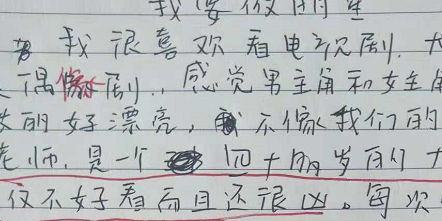 我要做明星
我很喜欢看电视剧.
偶像剧，感觉男主角和女主角
的好漂亮，不像我们的
老师，是一个四十岁的
仅不好看而且还很凶。每次